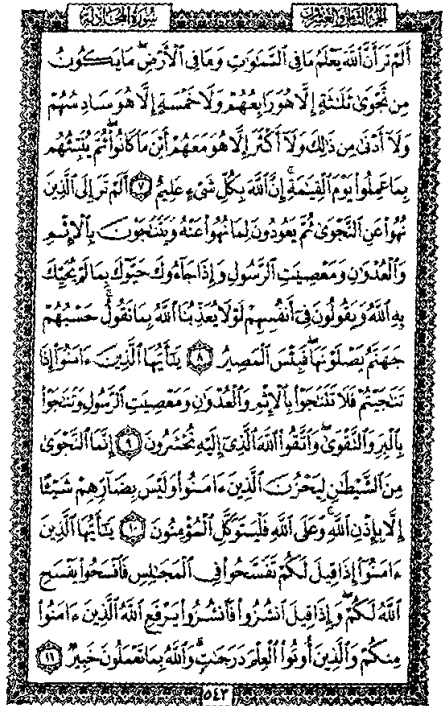 الجزء الثامن والعشرون سورة المجادلة
أَلَمْ تَرَ أَنَّ ٱللَّهَ يَعْلَمُ مَا فِى ٱلسَّمَٰوَٰتِ وَمَا فِى ٱلْأَرْضِ ۖ مَا يَكُونُ
مِن نَّجْوَىٰ ثَلَٰثَةٍ إِلَّا هُوَ رَابِعُهُمْ وَلَا خَمْسَةٍ إِلَّا هُوَ سَادِسُهُمْ
وَلَآ أَدْنَىٰ مِن ذَٰلِكَ وَلَآ أَكْثَرَ إِلَّا هُوَ مَعَهُمْ أَيْنَ مَا كَانُوا۟ ۖ ثُمَّ يُنَبِّئُهُم
بِمَا عَمِلُوا۟ يَوْمَ ٱلْقِيَٰمَةِ ۚ إِنَّ ٱللَّهَ بِكُلِّ شَىْءٍ عَلِيمٌ ٧ أَلَمْ تَرَ إِلَى ٱلَّذِينَ
نُهُوا۟ عَنِ ٱلنَّجْوَىٰ ثُمَّ يَعُودُونَ لِمَا نُهُوا۟ عَنْهُ وَيَتَنَٰجَوْنَ بِٱلْإِثْمِ
وَٱلْعُدْوَٰنِ وَمَعْصِيَتِ ٱلرَّسُولِ وَإِذَا جَآءُوكَ حَيَّوْكَ بِمَا لَمْ يُحَيِّكَ
بِهِ ٱللَّهُ وَيَقُولُونَ فِىٓ أَنفُسِهِمْ لَوْلَا يُعَذِّبُنَا ٱللَّهُ بِمَا نَقُولُ ۚ حَسْبُهُمْ
جَهَنَّمُ يَصْلَوْنَهَا ۖ فَبِئْسَ ٱلْمَصِيرُ ٨ يَٰٓأَيُّهَا ٱلَّذِينَ ءَامَنُوٓا۟ إِذَا
تَنَٰجَيْتُمْ فَلَا تَتَنَٰجَوْا۟ بِٱلْإِثْمِ وَٱلْعُدْوَٰنِ وَمَعْصِيَتِ ٱلرَّسُولِ وَتَنَٰجَوْا۟
بِٱلْبِرِّ وَٱلتَّقْوَىٰ ۖ وَٱتَّقُوا۟ ٱللَّهَ ٱلَّذِىٓ إِلَيْهِ تُحْشَرُونَ ٩ إِنَّمَا ٱلنَّجْوَىٰ
مِنَ ٱلشَّيْطَٰنِ لِيَحْزُنَ ٱلَّذِينَ ءَامَنُوا۟ وَلَيْسَ بِضَآرِّهِمْ شَيْـًٔا
إِلَّا بِإِذْنِ ٱللَّهِ ۚ وَعَلَى ٱللَّهِ فَلْيَتَوَكَّلِ ٱلْمُؤْمِنُونَ ١٠ يَٰٓأَيُّهَا ٱلَّذِينَ
ءَامَنُوٓا۟ إِذَا قِيلَ لَكُمْ تَفَسَّحُوا۟ فِى ٱلْمَجَٰلِسِ فَٱفْسَحُوا۟ يَفْسَحِ
ٱللَّهُ لَكُمْ ۖ وَإِذَا قِيلَ ٱنشُزُوا۟ فَٱنشُزُوا۟ يَرْفَعِ ٱللَّهُ ٱلَّذِينَ ءَامَنُوا۟
مِنكُمْ وَٱلَّذِينَ أُوتُوا۟ ٱلْعِلْمَ دَرَجَٰتٍ ۚ وَٱللَّهُ بِمَا تَعْمَلُونَ خَبِيرٌ ١١
٥٤٣